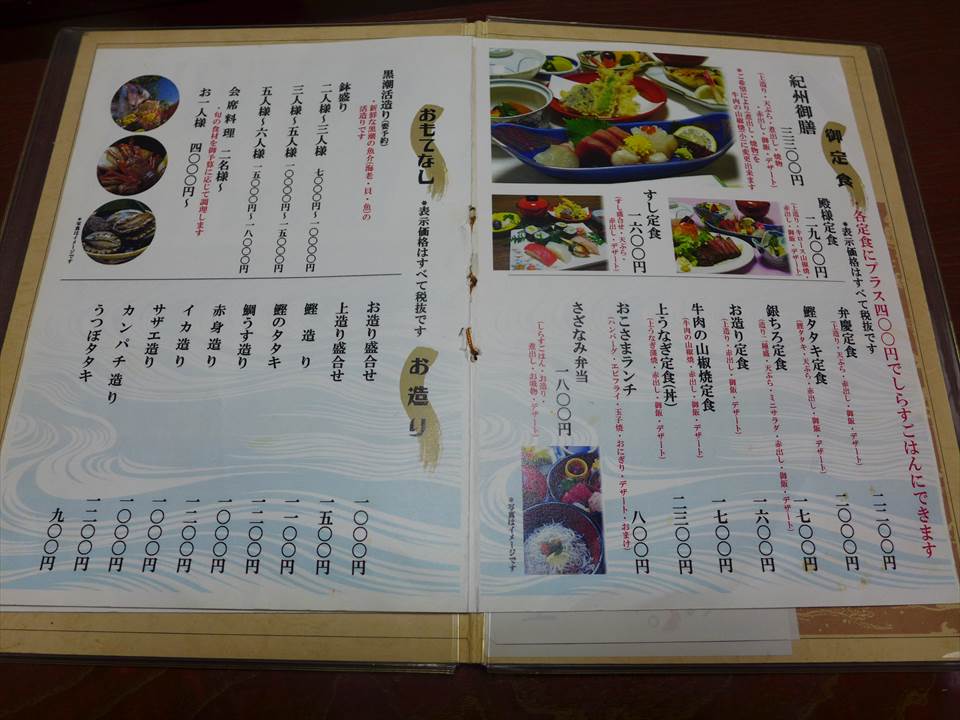 御定食
*各定食にプラス四〇〇円でしらすごはんにできます
*表示価格はすべて税抜です
紀州御膳 三三〇〇円
(上造り・天ぷら・煮出し・焼物
・赤出し・御飯・デザート)
*ご希望により(煮出し・焼物)を
牛肉の山椒焼(小)に変更出来ます
殿様定食 二九〇〇円
(上造り・牛ロース山椒焼・
赤出し・御飯・デザート)
すし定食 一六〇〇円
(すし盛合せ・天ぷら・
赤出し・デザート)
弁慶定食 二二〇〇円
(上造り・天ぷら・赤出し・御飯・デザート)
鰹タタキ定食 二〇〇〇円
(鰹タタキ・天ぷら・赤出し・御飯・デザート)
銀ちろ定食 一七〇〇円
(造り二種盛・天ぷら・ミニサラダ・赤出し・御飯・デザート)
お造り定食 一六〇〇円
(上造り・赤出し・御飯・デザート)
牛肉の山椒焼定食 一七〇〇円
(牛肉の山椒焼・赤出し・御飯・デザート)
上うなぎ定食(丼) 二三〇〇円
(上うなぎ蒲焼・赤出し・御飯・デザート)
おこさまランチ 八〇〇円
(ハンバーグ・エビフライ・玉子焼・おにぎり・デザート・おまけ)
さざなみ弁当 一八〇〇円
(しらすごはん・お造り・
煮出し・お吸物・デザート)
*写真はイメージです
おもてなし
*表示価格はすべて税抜です
黒潮活造り(要予約)
・新鮮な黒潮の魚介(海老・貝・魚)の
活造りです
鉢盛り
二人様〜三人様 七〇〇〇円〜一〇〇〇〇円
三人様〜五人様 一〇〇〇〇円〜一五〇〇〇円
五人様〜六人様 一五〇〇〇円〜一八〇〇〇円
会席料理 二名様〜
・旬の食材を御予算に応じて調理します
お一人様 四〇〇〇円〜
*写真はイメージです
お造り
お造り盛合せ 一〇〇〇円
上造り盛合せ 一五〇〇円
鰹造り 一一〇〇円
鰹のタタキ 一二〇〇円
鯛うす造り 一〇〇〇円
赤身造り 一二〇〇円
イカ造り 一〇〇〇円
サザエ造り 一〇〇〇円
カンパチ造り 一二〇〇円
うつぼタタキ 九〇〇円